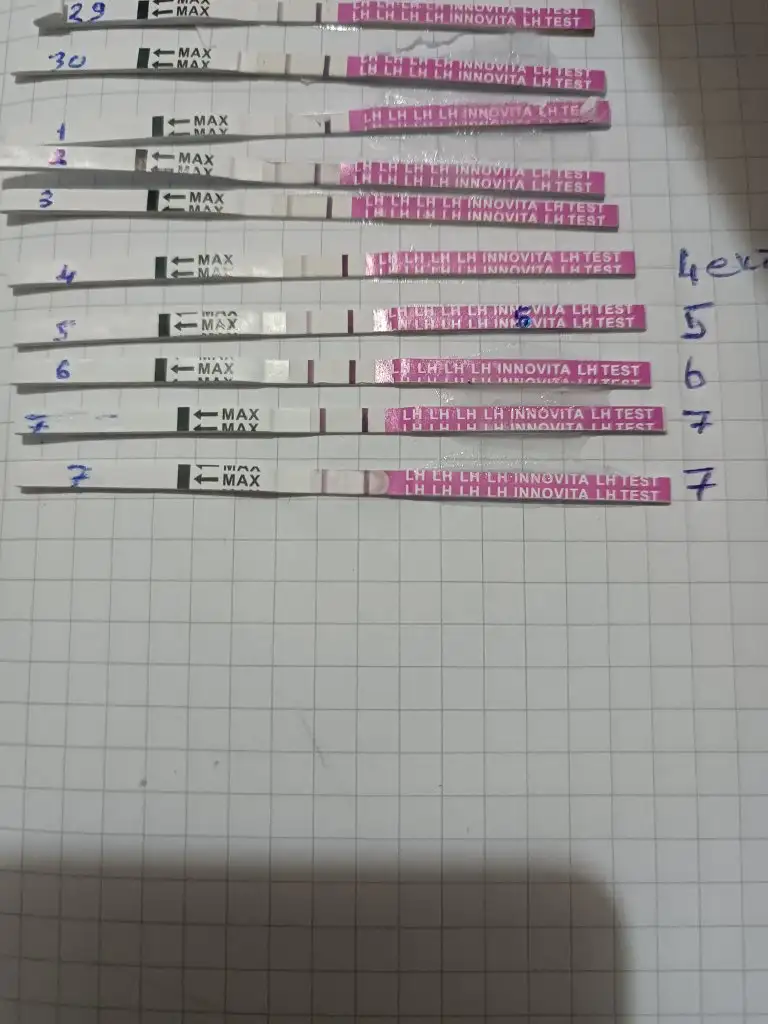 29 MAX LH LH LH LH INNOVITA LH TEST
MAX LH LH LH LH INNOVITA LH TEST
30 MAX LH LH LH LH INNOVITA LH TEST
MAX LH LH LH LH INNOVITA LH TEST
1 MAX LH LH LH LH INNOVITA LH TE
MAX
2 MAX LH LH LH LH INNOVITA LH TEST
MAX LH LH LH LH INNOVITA LH TEST
3 MAX LH LH LH LH INNOVITA LH TEST
MAX LH LH LH LH INNOVITA LH TEST
4 MAX LH LH LH LH INNOVITA LH TEST 4
MAX LH LH LH LH INNOVITA LH TEST
5 MAX LH LH LH LH INNOVITA LH TEST 5
MAX LH LH LH LH INNOVITA LH TEST
6 MAX LH LH LH LH INNOVITA LH TEST 6
MAX LH LH LH LH INNOVITA LH TEST
7 MAX LH LH LH LH INNOVITA LH TEST 7
MAX LH LH LH LH INNOVITA LH TEST
7 MAX LH LH LH LH INNOVITA LH TEST 7
MAX LH LH LH LH INNOVITA LH TEST